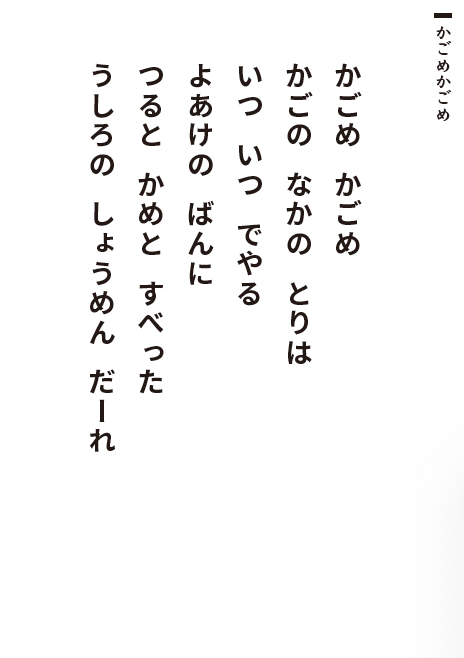 かごめかごめ
かごめ　かごめ
かごの　なかの　とりは
いつ　いつ　でやる
よあけの　ばんに
つると　かめと　すべった
うしろの　しょうめん　だーれ